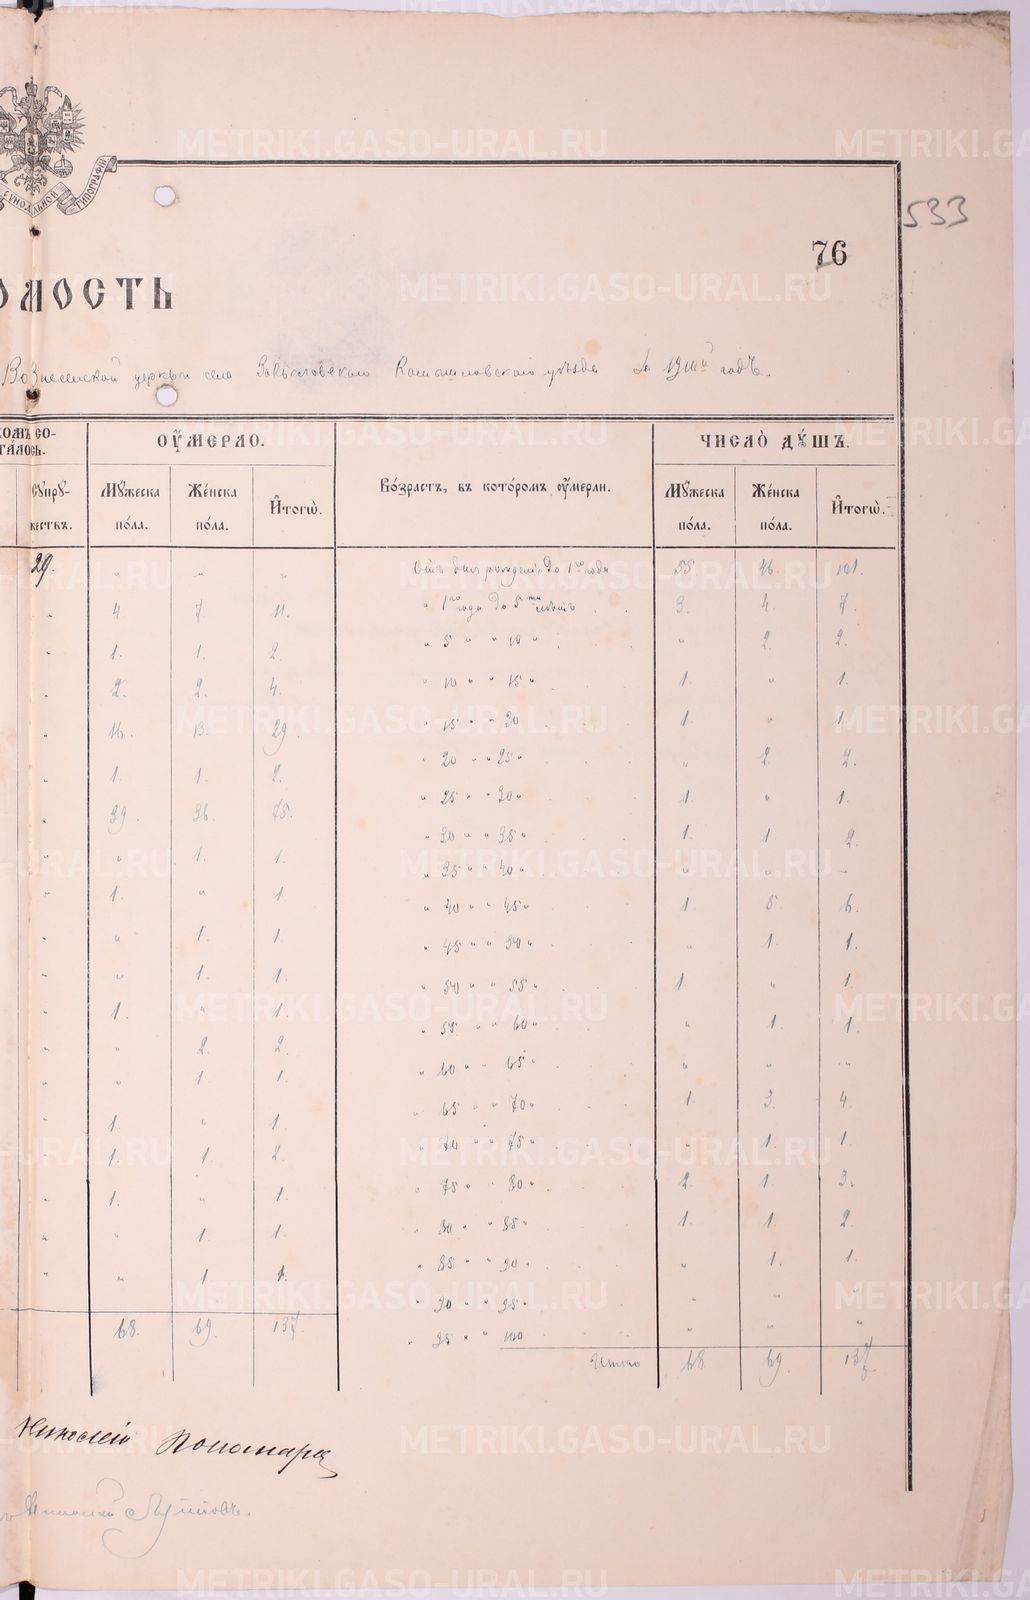 СѴНОДАЛЬНОЙ ТИПОГРАФІИ
533
76
ОМОСТЬ
Вознесенской церкви села Камышловскаго уѣзда за годъ.
КОМЪ СО- ОУМЕРЛО. ЧИСЛО ДУШЪ.
ТАЛОСЬ.
Супру- Мужеска Женска Итогѡ. Возрастъ, въ которомъ оумерли. Мужеска Женска Итогѡ.
жествъ. пола. пола. пола. пола.
29. " " " Отъ дня рожденія до 1го года 55 46. 101.
" 4 7 11. " 1го года до 5ти лѣтъ 3. 4. 7.
" 1. 1. 2. " 5 " " 10 " " 2. 2.
" 2. 2. 4. " 10 " " 15 " 1. " 1.
" 16. 13. 29. " 15 " " 20 1. " 1.
" 1. 1. 2. " 20 " " 25 " " 2 2.
" 39. 36. 75. " 25 " " 30 " 1. " 1.
" " 1. 1. " 30 " " 35 " 1. 1. 2.
" 1. " 1. " 35 " " 40 " " " "
" " 1. 1. " 40 " " 45 " 1. 5. 6.
" " 1. 1. " 45 " " 50 " " 1. 1.
" 1. " 1. " 50 " " 55 " 1. " 1.
" " 2. 2. " 55 " " 60 " " 1. 1.
" " 1. 1. " 60 " " 65 " " " "
" 1. " 1. " 65 " " 70 " 1. 3. 4.
" 1. 1 2. " 70 " " 75 " " 1. 1.
" 1. " 1. " 75 " " 80 " 2. 1. 3.
" " 1. 1. " 80 " " 85 " 1. 1. 2.
" " 1 1. " 85 " " 90 " " 1. 1.
" 90 " " 95 " " " "
68. 69. 137. " 95 " " 100 " " "
Итого 68 69. 137
Николай Пономарев
Николай
METRIKI.GASO-URAL.RU